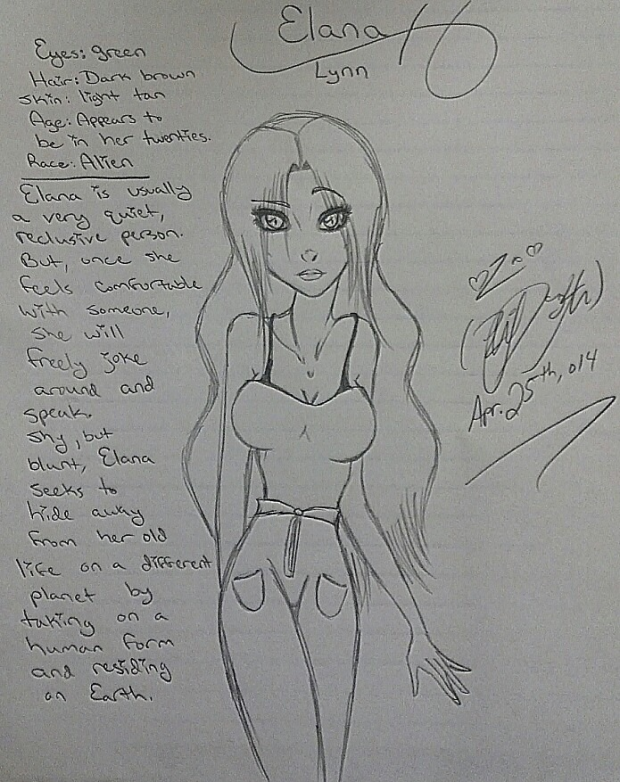 Elana
Lynn
Eyes: green
Hair: Dark brown
Skin: light tan
Age: Appears to
be in her twenties.
Race: Alien
Elana is usually
a very quiet,
reclusive person.
But, once she
feels comfortable
with someone,
she will
freely joke
around and
speak.
Shy, but
blunt, Elana
seeks to
hide away
from her old
life on a different
planet by
taking on a
human form
and residing
on Earth.
Apr. 25th, 014